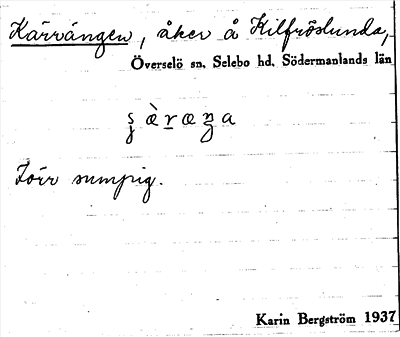 Kärrängen, åker å Kilfröslunda,
Överselö sn. Selebo hd. Södermanlands län
Förr sumpig.
Karin Bergström 1937